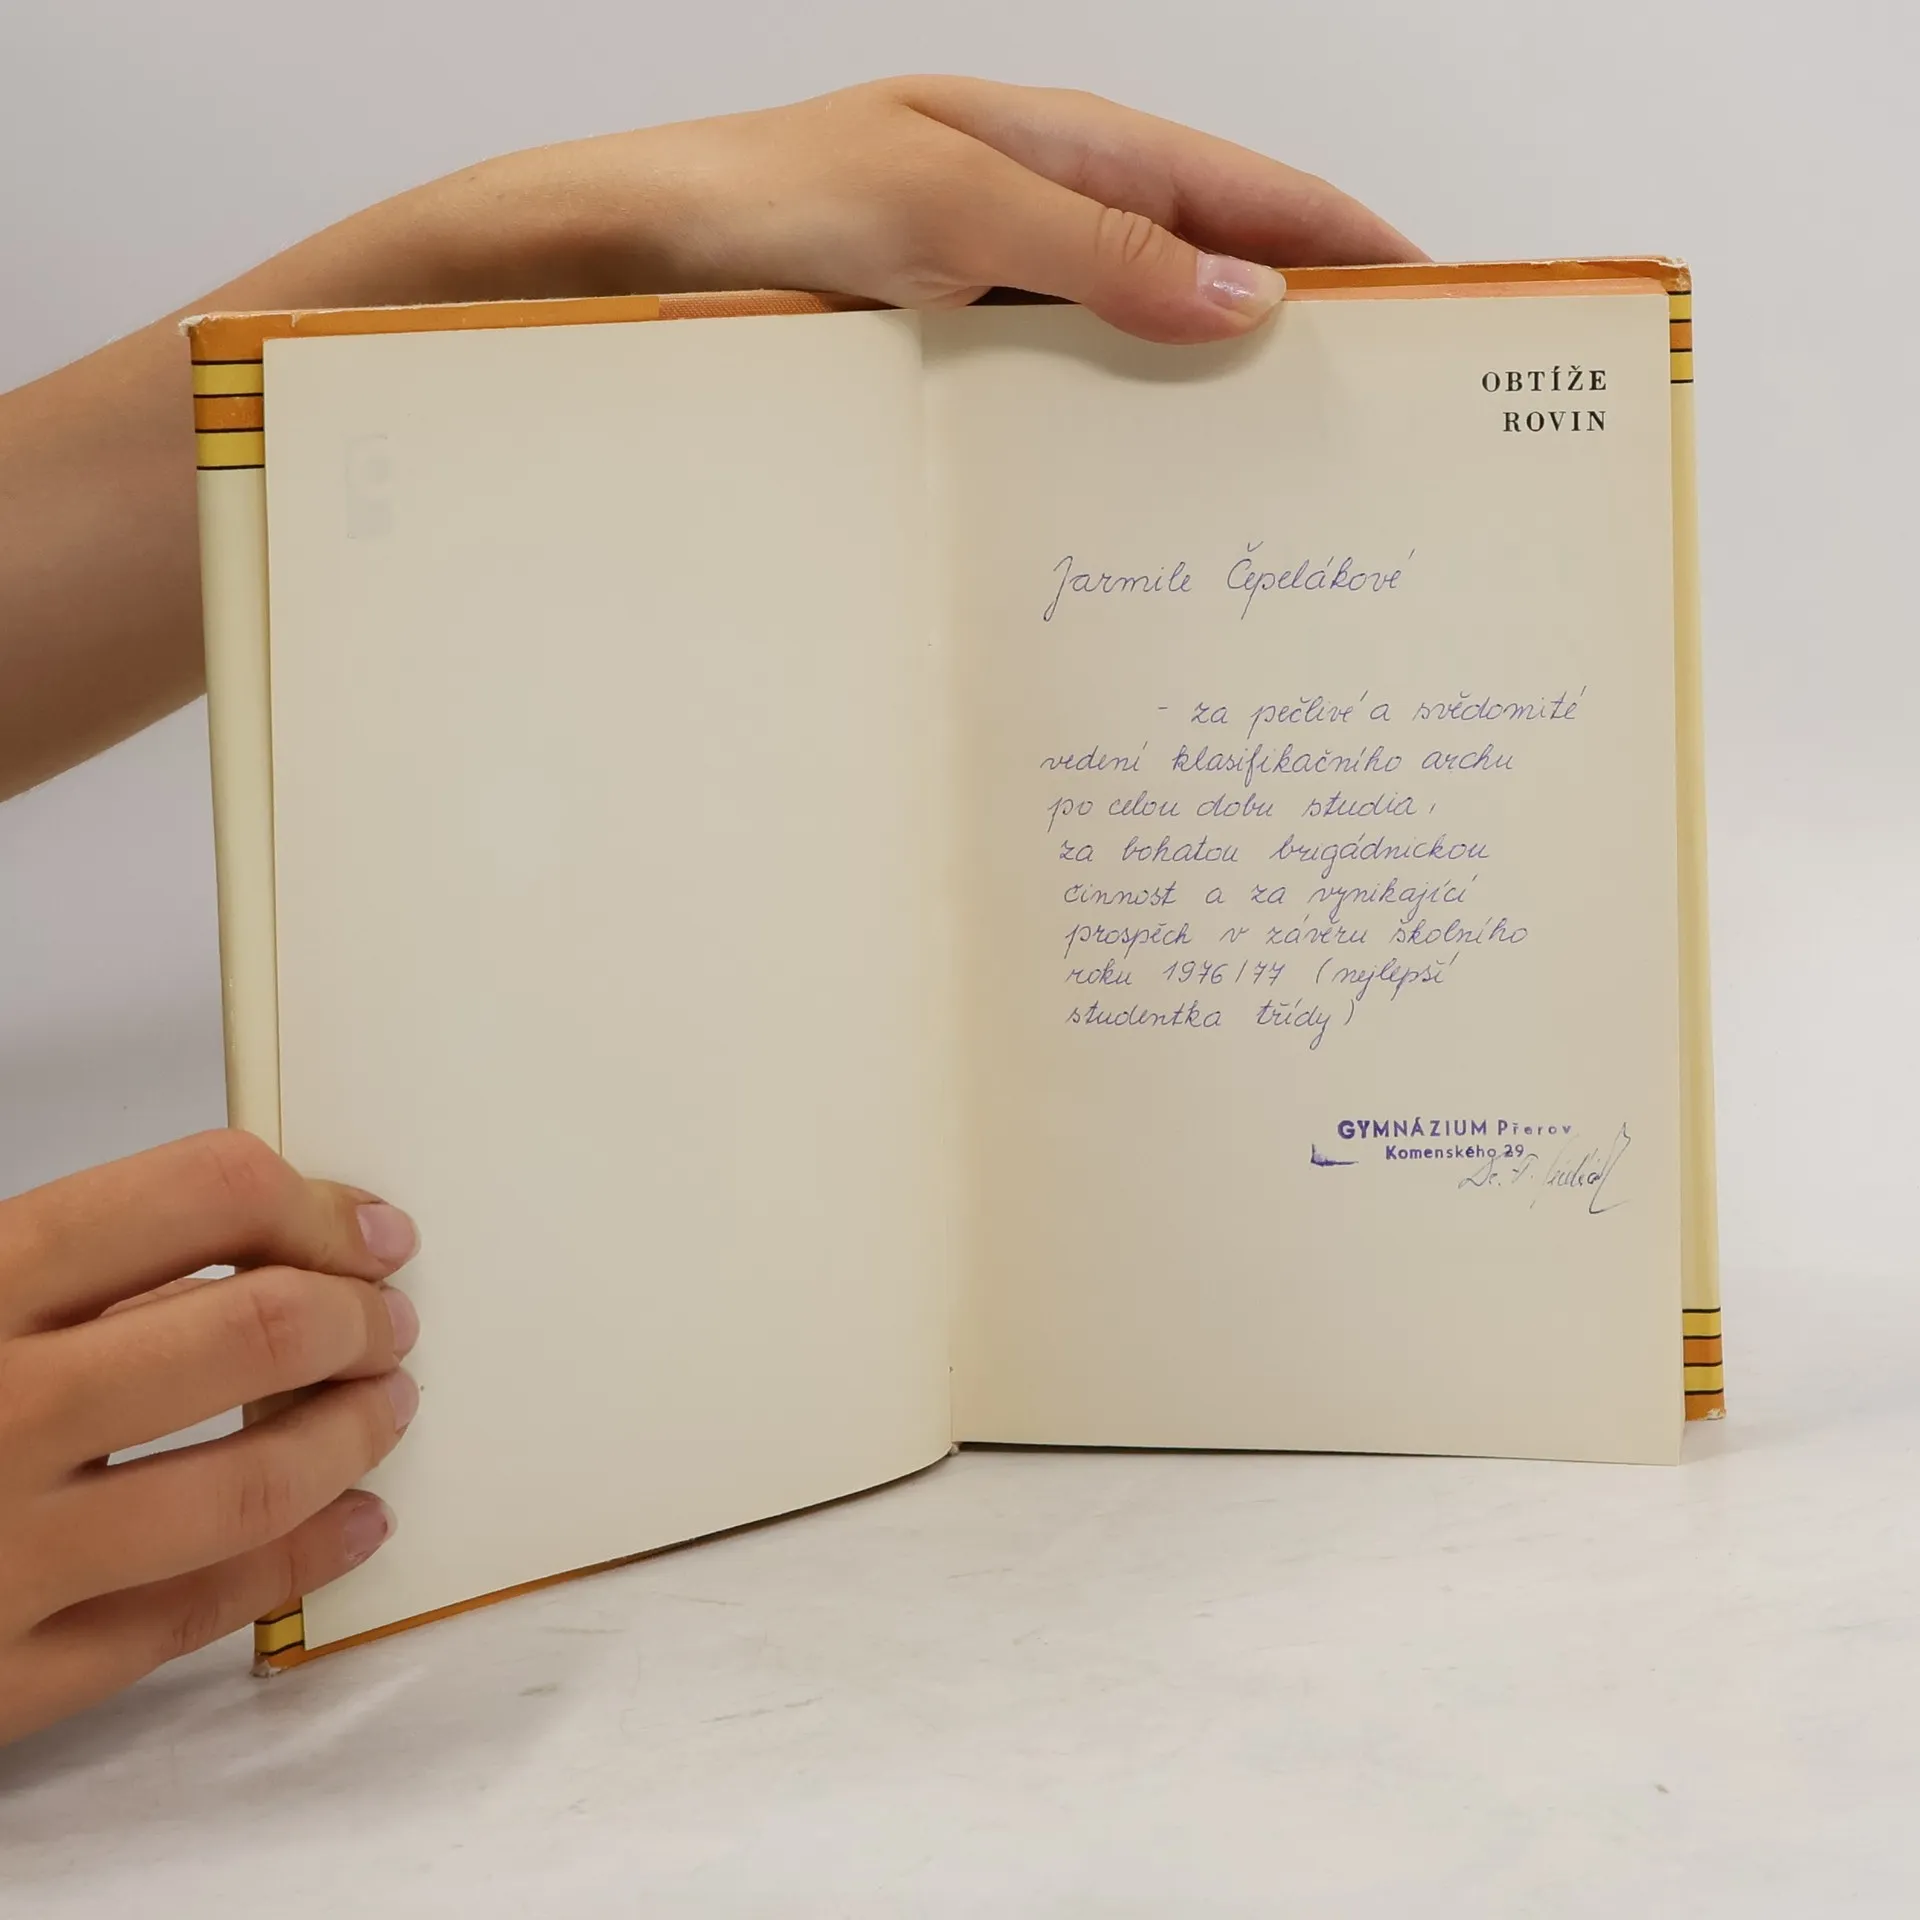 OBTÍŽE
ROVIN
Jarmile Čepelákové
- za pečlivé a svědomité
vedení klasifikačního archu
po celou dobu studia,
za bohatou brigádnickou
činnost a za vynikající
prospěch v závěru školního
roku 1976/77 (nejlepší
studentka třídy)
GYMNÁZIUM Přerov
Komenského 29